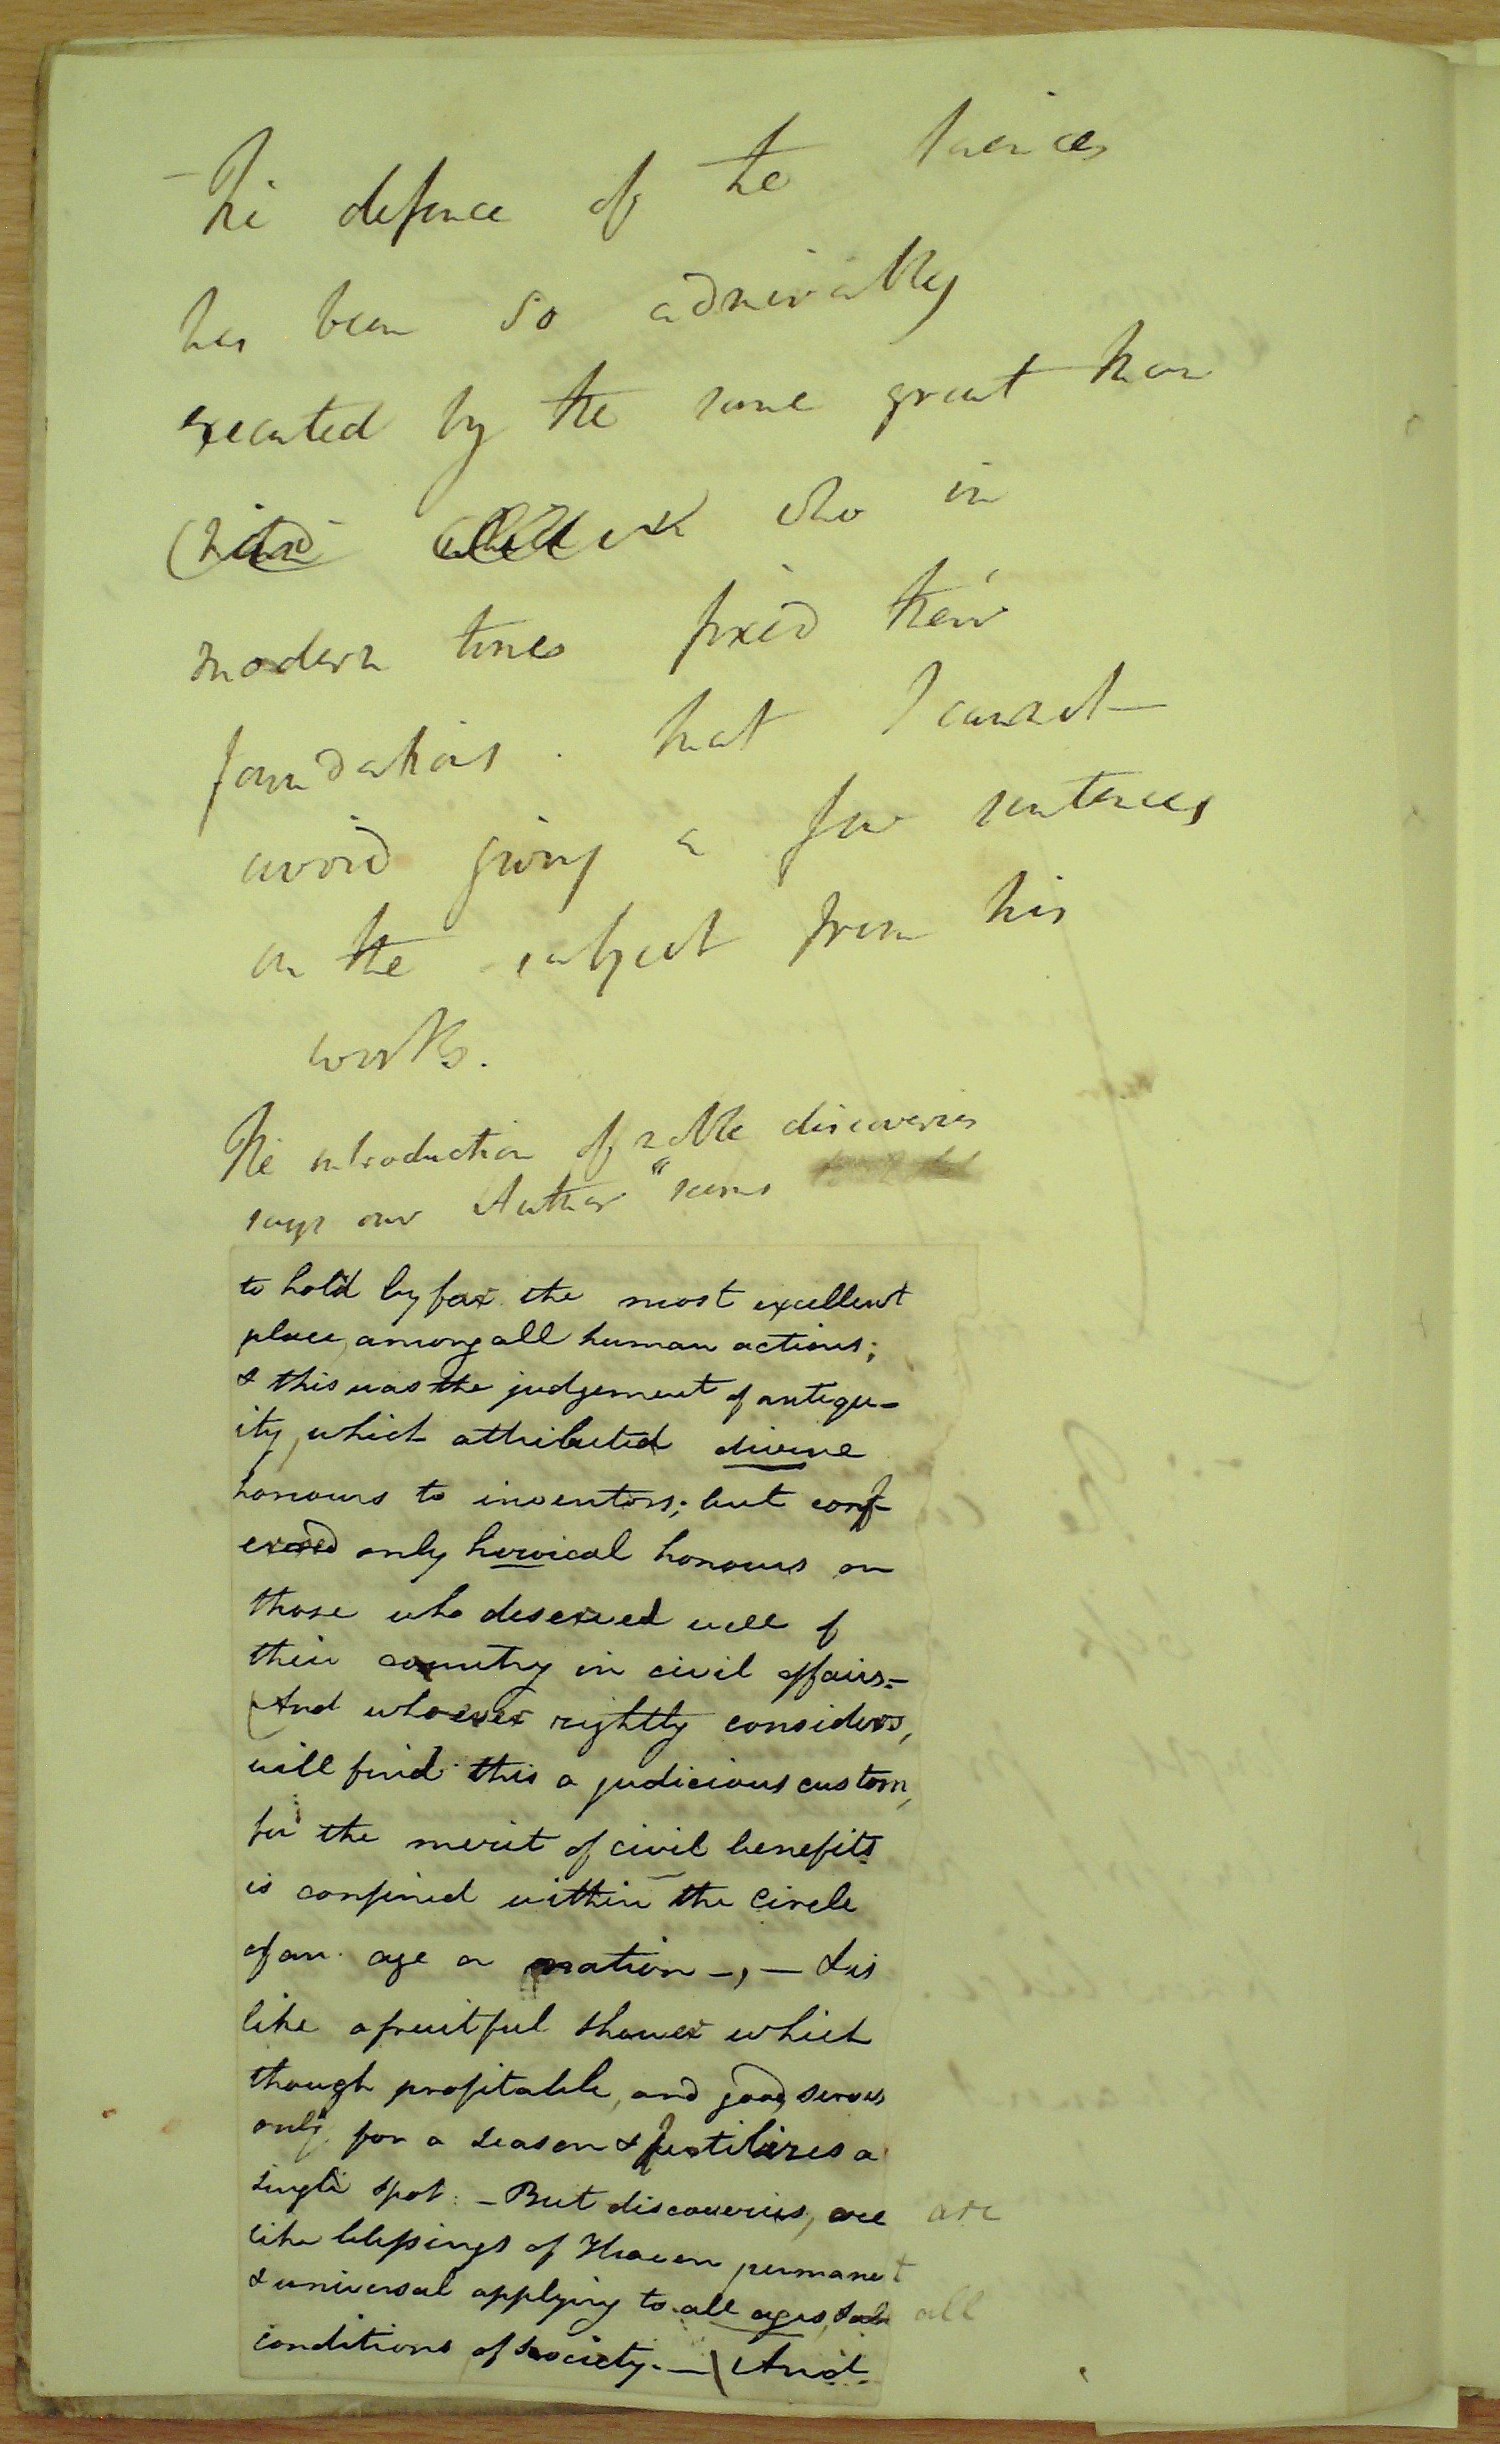 - The defence of the sciences
has been so admirably
executed by the same great man
who in
modern times fixed their
foundations. that I cannot
avoid giving a few sentences
on the subject from his
works.
The introduction of noble discoveries
says our Author "seems
to hold by far the most excellent
place, among all human actions;
& this was the judgement of antiqu-
ity, which attributed divine
honours to inventors; but conf-
erred only heroical honours on
those who deserved well of
their country in civil affairs.-
(And whoever rightly considers,
will find this a judicious custom,
for the merit of civil benefits
is confined within the circle
of an age or nation -, - & is
like a fruitful shower which
though profitable, and good, serves
only for a season & fertilizes a
single spot. - But discoveries, are are
like blessings of Heaven permanent
& universal applying to all ages, & all all
conditions of society. - \ And